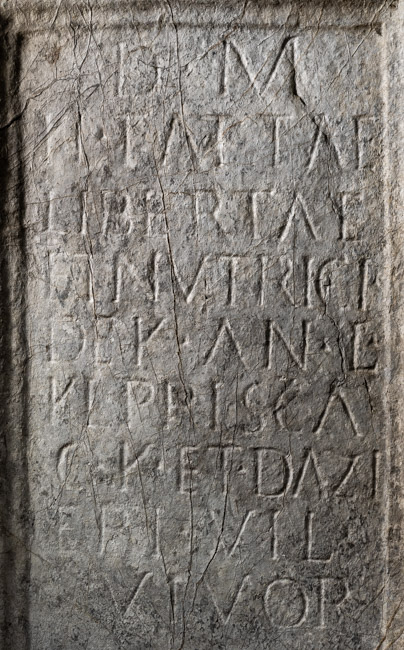 D M
TATTAE
LIBERTAE
ET NVTRICI
DEK · AN · L
KEPP PISCA
C · K · ET · DAZI
EPI VILL
VIVOR